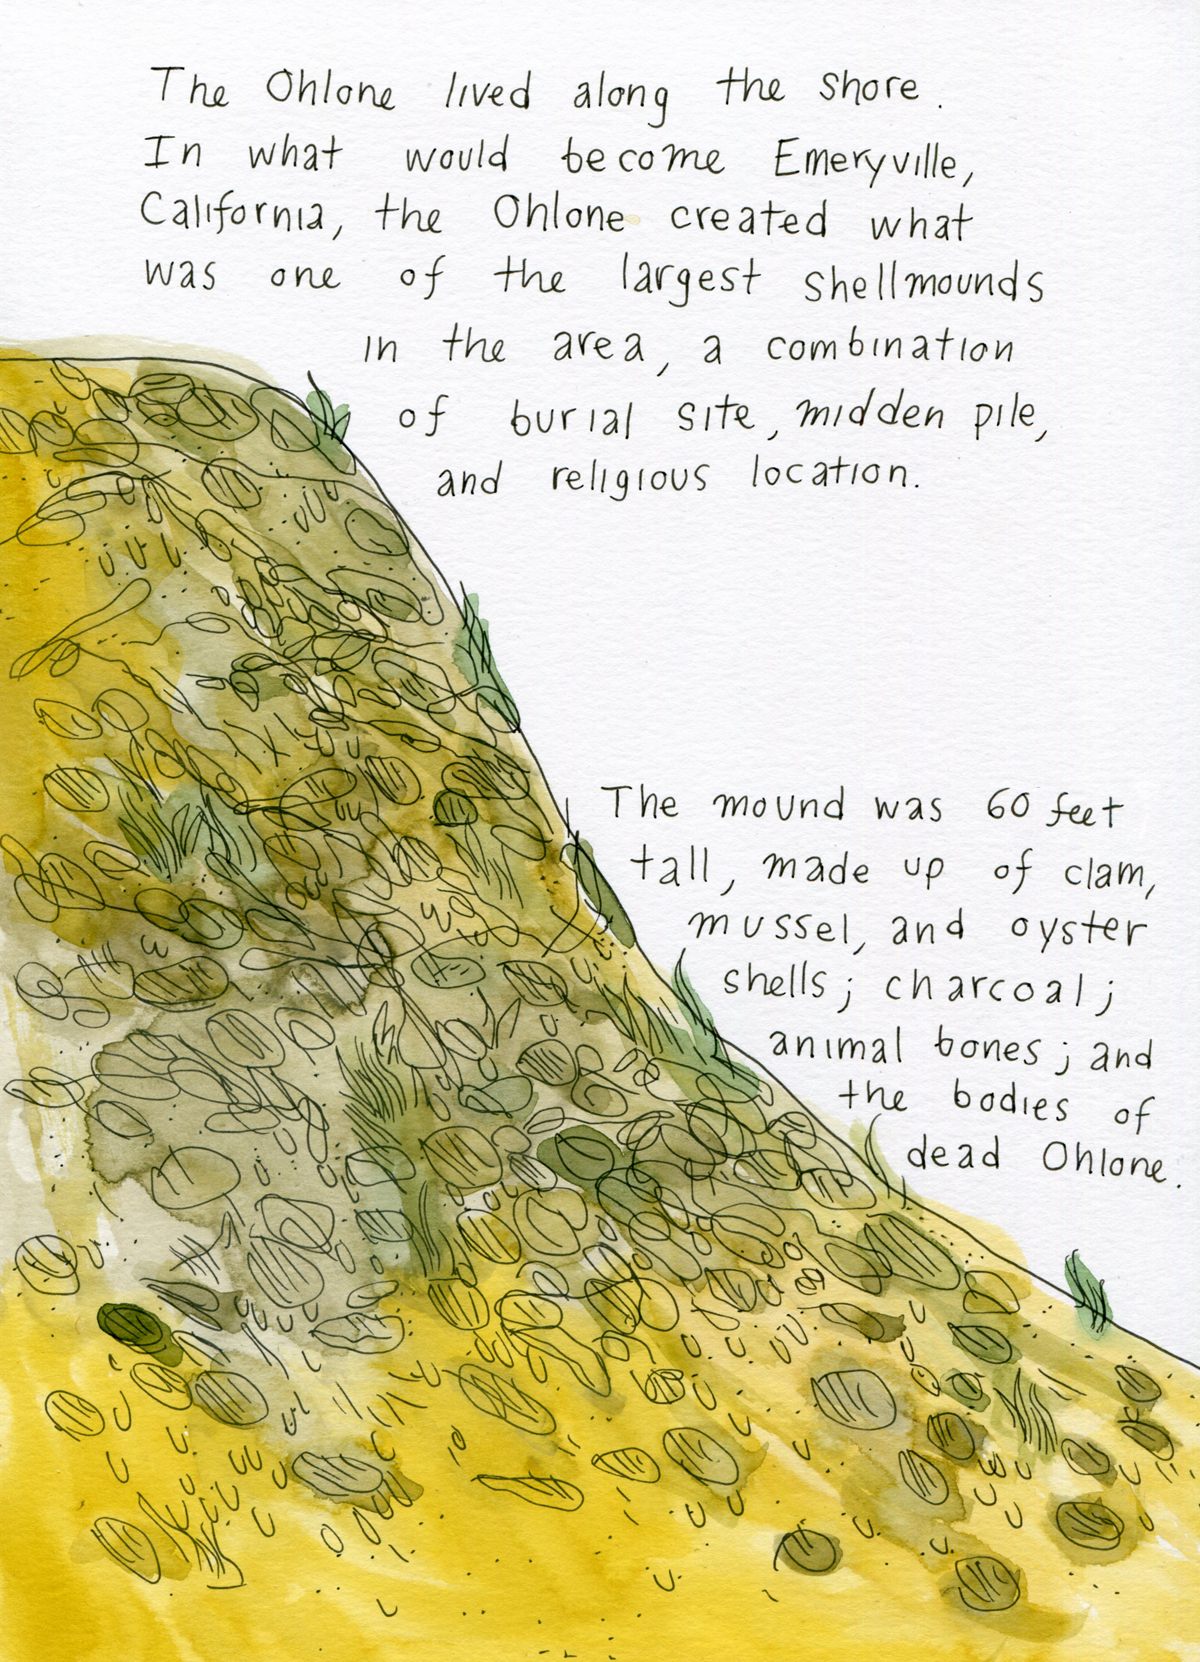 The Ohlone lived along the shore.
In what would become Emeryville,
California, the Ohlone created what
was one of the largest shellmounds
in the area, a combination
of burial site, midden pile,
and religious location.
The mound was 60 feet
tall, made up of clam,
mussel, and oyster
shells; charcoal;
animal bones; and
the bodies of
dead Ohlone.